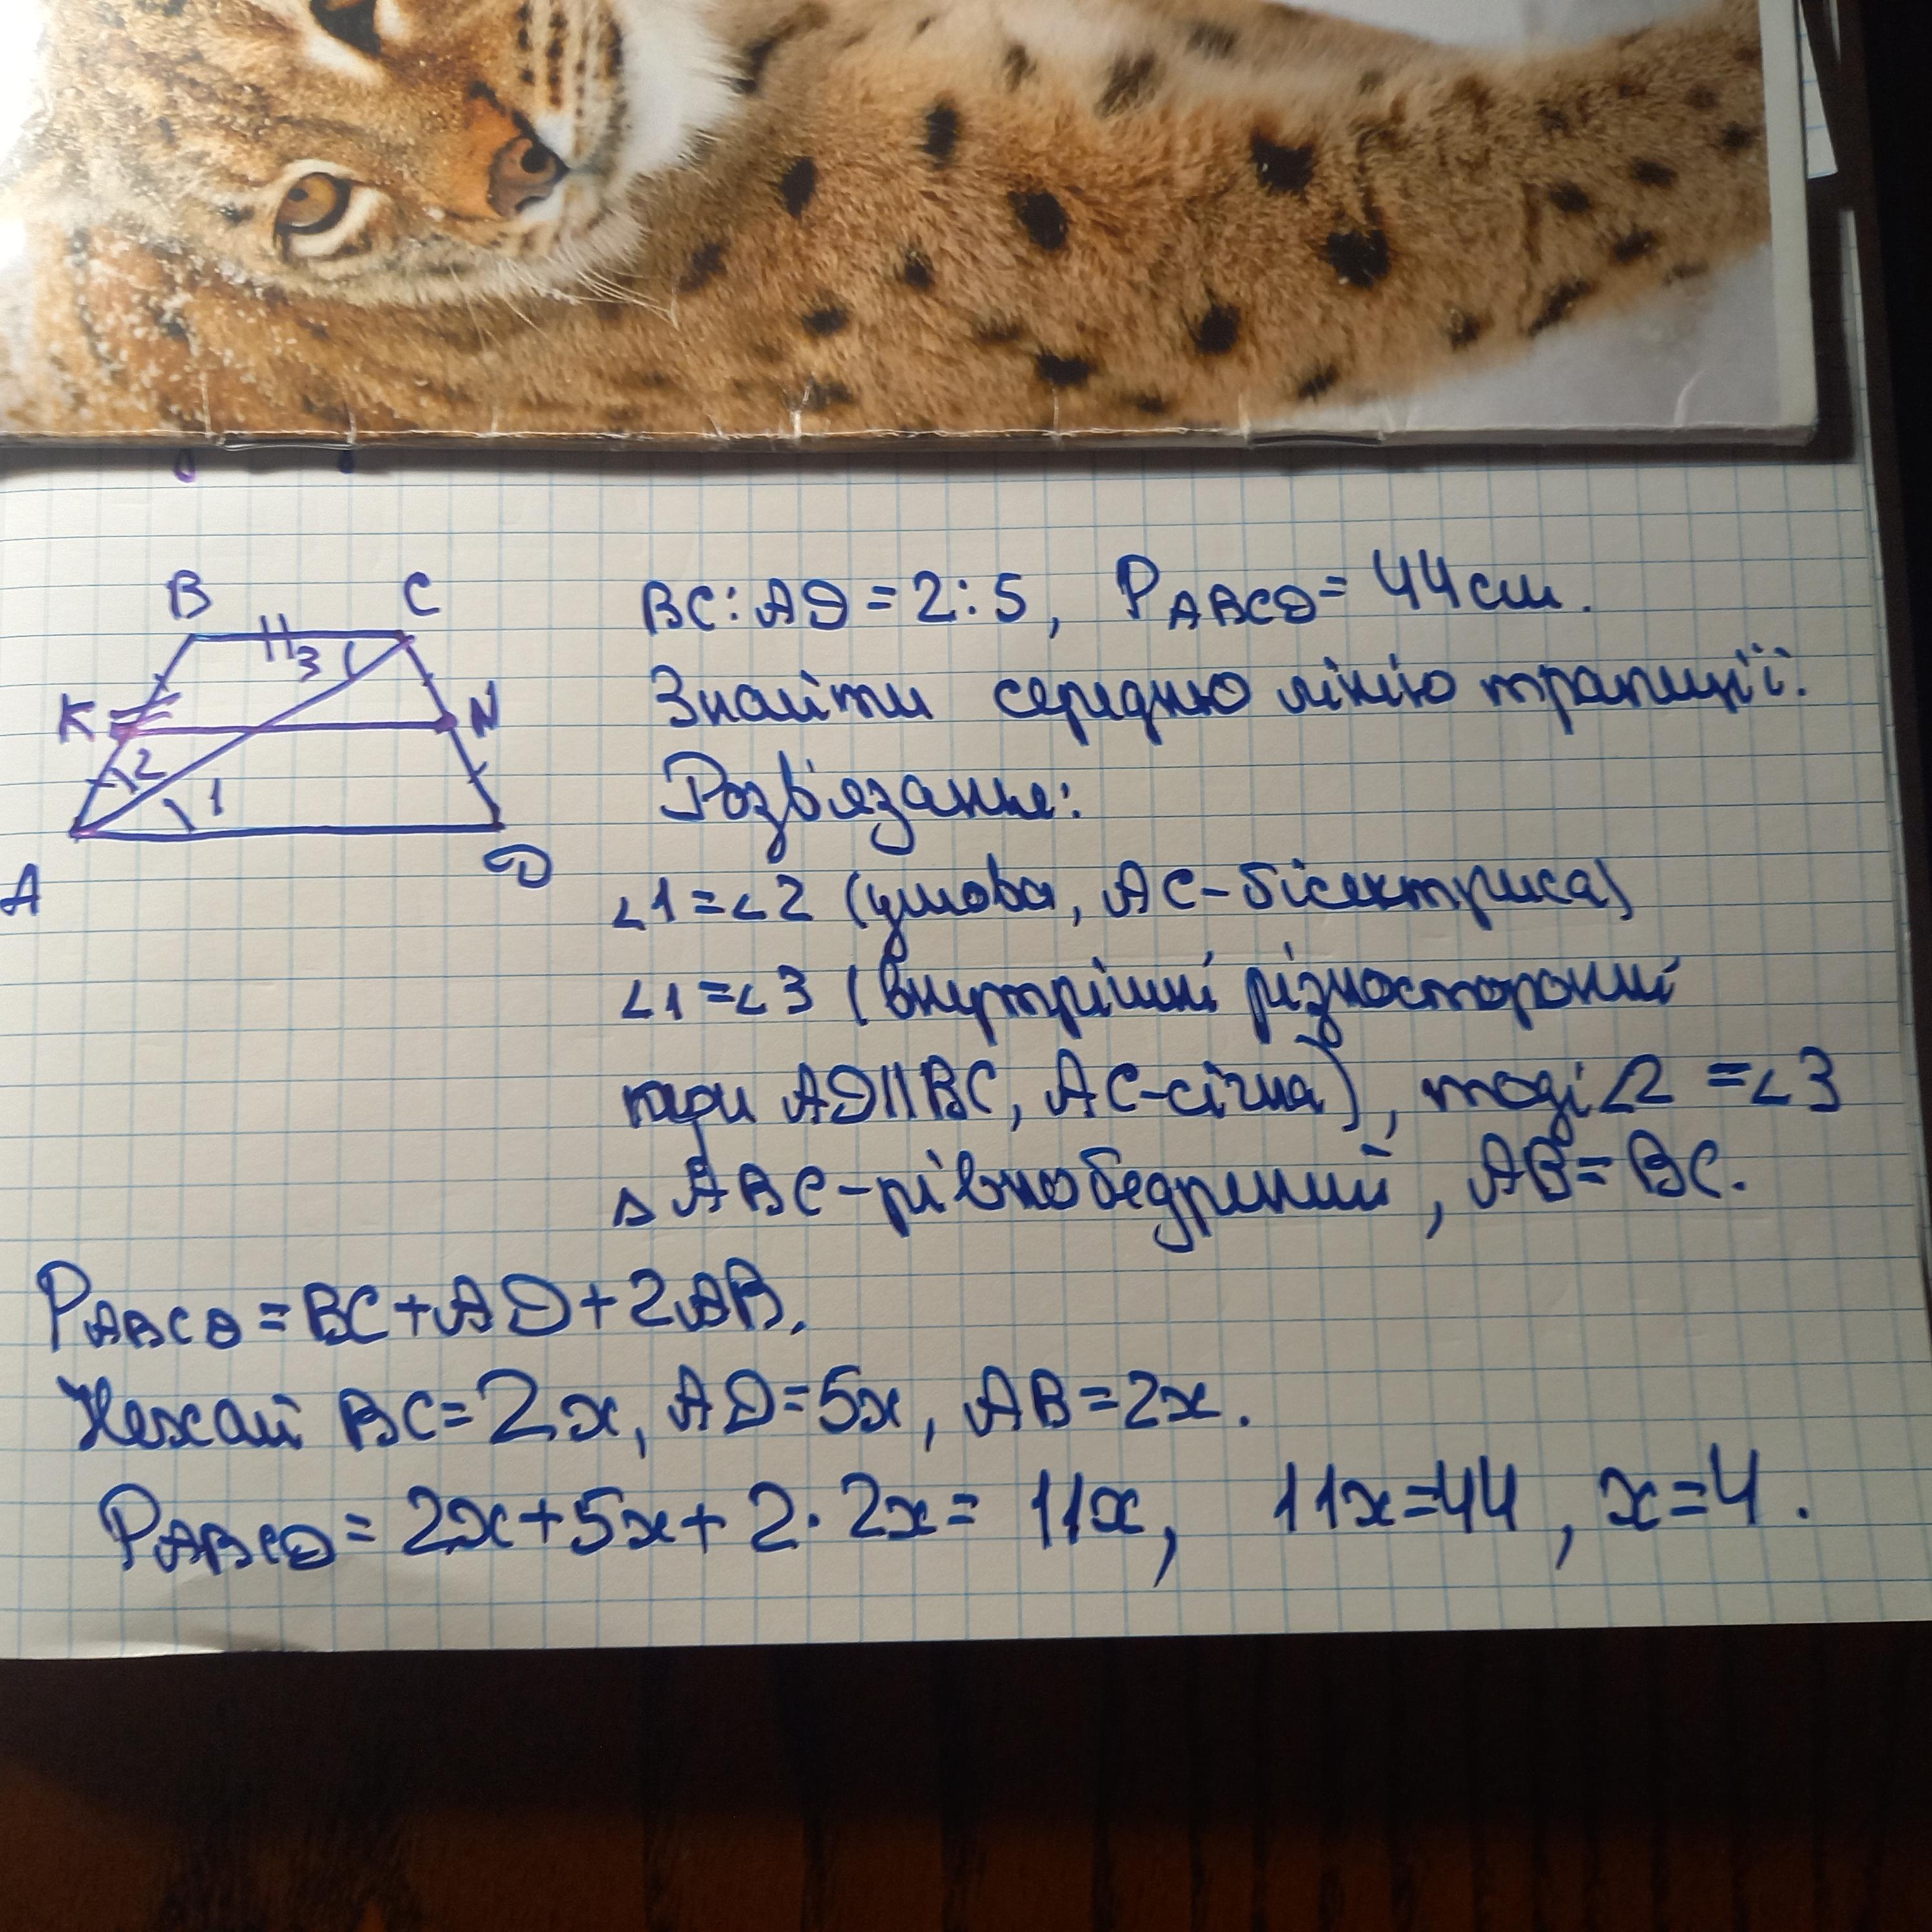 B C
K N
3
2 1
A D
BC:AD=2:5, PABCD=44см.
Знайти середню лінію трапеції.
Розв'язання:
∠1=∠2 (умова, AC-бісектриса)
∠1=∠3 (внутрішні різносторонні
при AD||BC, AC-січна), тоді ∠2=∠3
△ABC-рівнобедрений, AB=BC.
PABCD=BC+AD+2AB.
Нехай BC=2x, AD=5x, AB=2x.
PABCD=2x+5x+2·2x=11x, 11x=44, x=4.